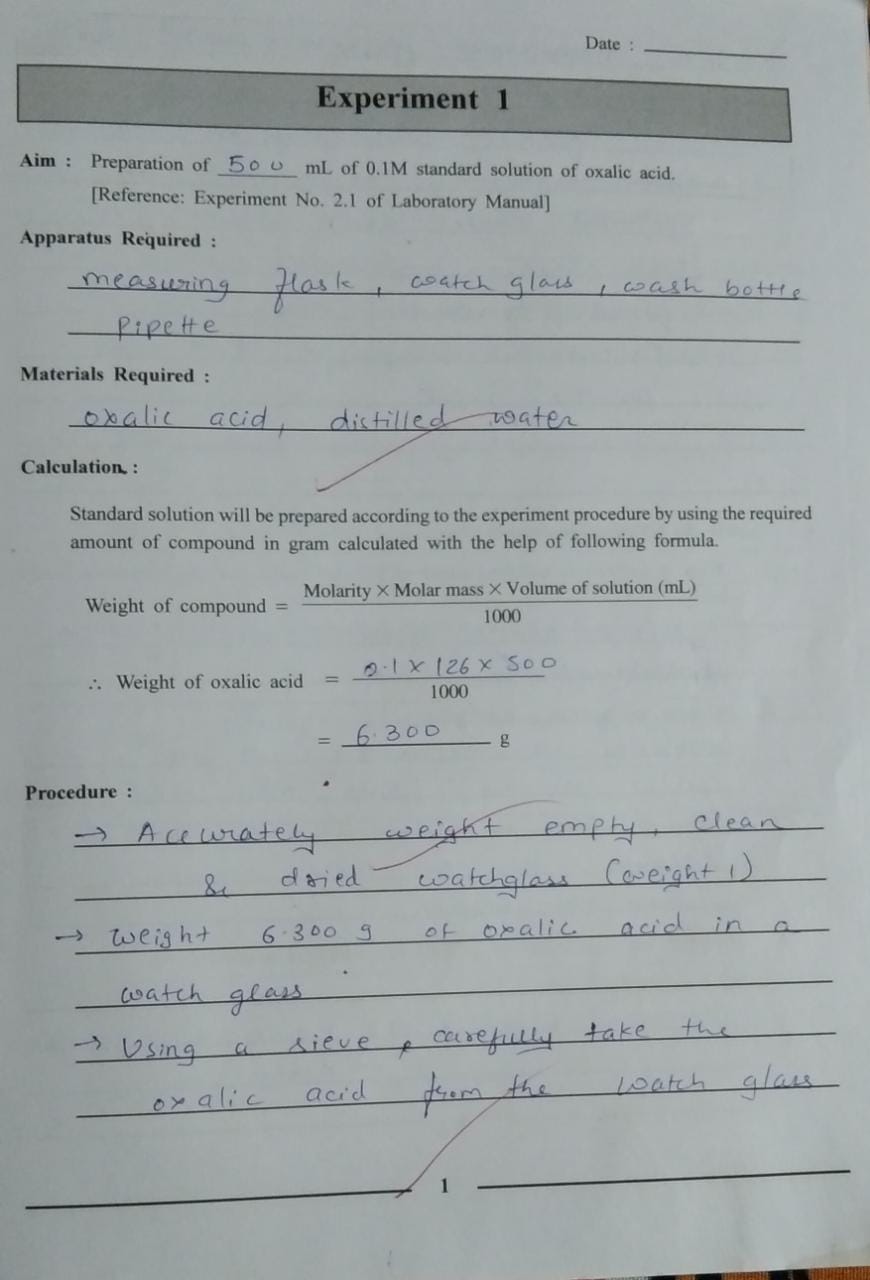 Date :
Experiment 1
Aim : Preparation of 500 mL of 0.1M standard solution of oxalic acid.
[Reference: Experiment No. 2.1 of Laboratory Manual]
Apparatus Required :
measuring flask, watch glass, wash bottle
pipette
Materials Required :
oxalic acid, distilled water
Calculation :
Standard solution will be prepared according to the experiment procedure by using the required
amount of compound in gram calculated with the help of following formula.
Molarity × Molar mass × Volume of solution (mL)
Weight of compound =
1000
0.1 × 126 × 500
∴ Weight of oxalic acid =
1000
= 6.300 g
Procedure :
→ Accurately weight empty, clean
& dried watchglass (weight 1)
→ weight 6.300 g of oxalic acid in a
watch glass
→ Using a sieve, carefully take the
oxalic acid from the watch glass
1